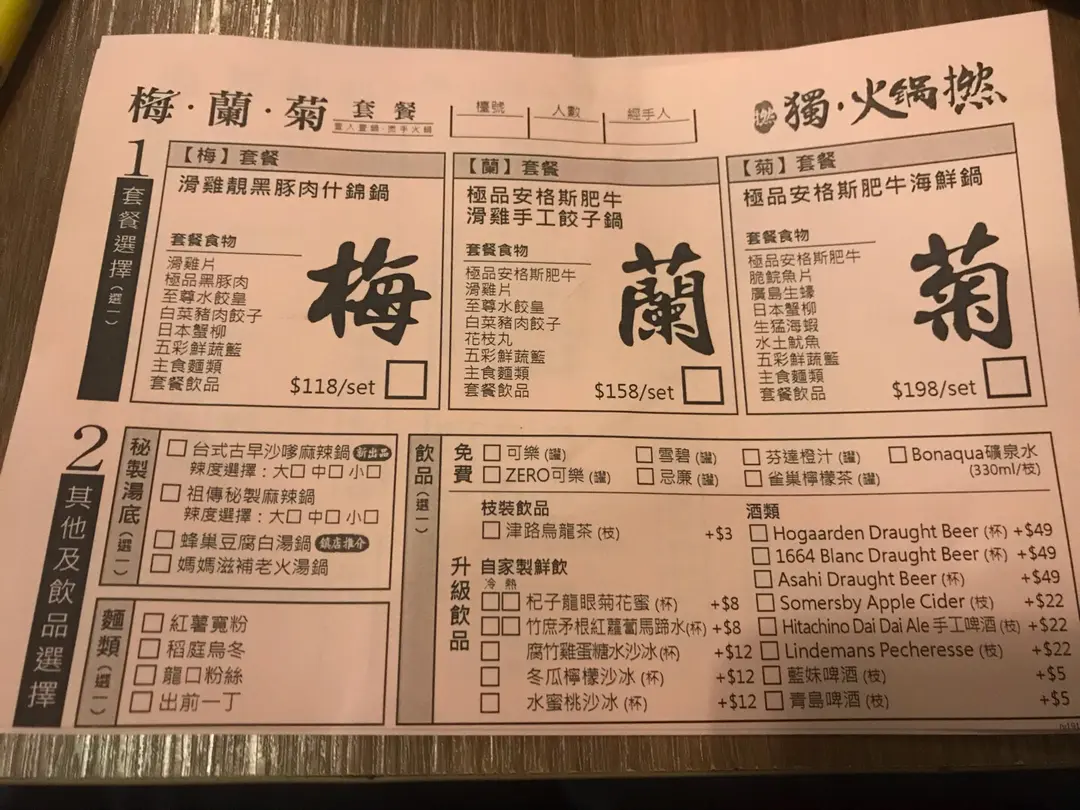 梅·蘭·菊 套餐
壹人壹鍋·煮手火鍋
檯號
人數
經手人
獨·火鍋撚
1
套餐選擇(選一)
【梅】套餐
滑雞靚黑豚肉什錦鍋
套餐食物
滑雞片
極品黑豚肉
至尊水餃皇
白菜豬肉餃子
日本蟹柳
五彩鮮蔬籃
主食麵類
套餐飲品
梅
$118/set
【蘭】套餐
極品安格斯肥牛
滑雞手工餃子鍋
套餐食物
極品安格斯肥牛
滑雞片
至尊水餃皇
白菜豬肉餃子
花枝丸
五彩鮮蔬籃
主食麵類
套餐飲品
蘭
$158/set
【菊】套餐
極品安格斯肥牛海鮮鍋
套餐食物
極品安格斯肥牛
脆鯇魚片
廣島生蠔
日本蟹柳
生猛海蝦
水土魷魚
五彩鮮蔬籃
主食麵類
套餐飲品
菊
$198/set
2
其他及飲品選擇
秘製湯底(選一)
台式古早沙嗲麻辣鍋 新出品
辣度選擇：大□ 中□ 小□
祖傳秘製麻辣鍋
辣度選擇：大□ 中□ 小□
蜂巢豆腐白湯鍋 鎮店推介
媽媽滋補老火湯鍋
麵類(選一)
紅薯寬粉
稻庭烏冬
龍口粉絲
出前一丁
飲品(選一)
免費
可樂 (罐)
雪碧 (罐)
芬達橙汁 (罐)
Bonaqua礦泉水
(330ml/枝)
ZERO可樂 (罐)
忌廉 (罐)
雀巢檸檬茶 (罐)
升級飲品
枝裝飲品
津路烏龍茶 (枝) +$3
自家製鮮飲
冷 熱
杞子龍眼菊花蜜 (杯) +$8
竹庶矛根紅蘿蔔馬蹄水(杯) +$8
腐竹雞蛋糖水沙冰(杯) +$12
冬瓜檸檬沙冰 (杯) +$12
水蜜桃沙冰 (杯) +$12
酒類
Hogaarden Draught Beer (杯) +$49
1664 Blanc Draught Beer (杯) +$49
Asahi Draught Beer (杯) +$49
Somersby Apple Cider (枝) +$22
Hitachino Dai Dai Ale 手工啤酒 (枝) +$22
Lindemans Pecheresse (枝) +$22
藍妹啤酒 (枝) +$5
青島啤酒 (枝) +$5